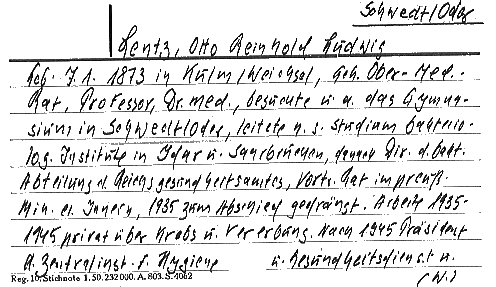 Schwedt/Oder
Lentz, Otto Reinhold Ludwig
Geb. 7. 1. 1873 in Kulm/Weichsel, Geh. Ober-Med.-
Rat, Professor, Dr. med., besuchte u. a. das Gymna-
sium in Schwedt/Oder, leitete n. s. Studium bakterio-
log. Institute in Idar u. Saarbrücken, danach Dir. d. bakt.
Abteilung d. Reichsgesundheitsamtes, Vortr. Rat im preuß.
Min. d. Innern, 1935 zum Abschied gedrängt. Arbeit 1935-
1945 privat über Krebs u. Vererbung. Nach 1945 Präsident
d. Zentralinst. f. Hygiene u. Gesundheitsdienst u.
Reg. 10, Stichnote 1. 50. 232000. A. 803. S. 4062
(W.)